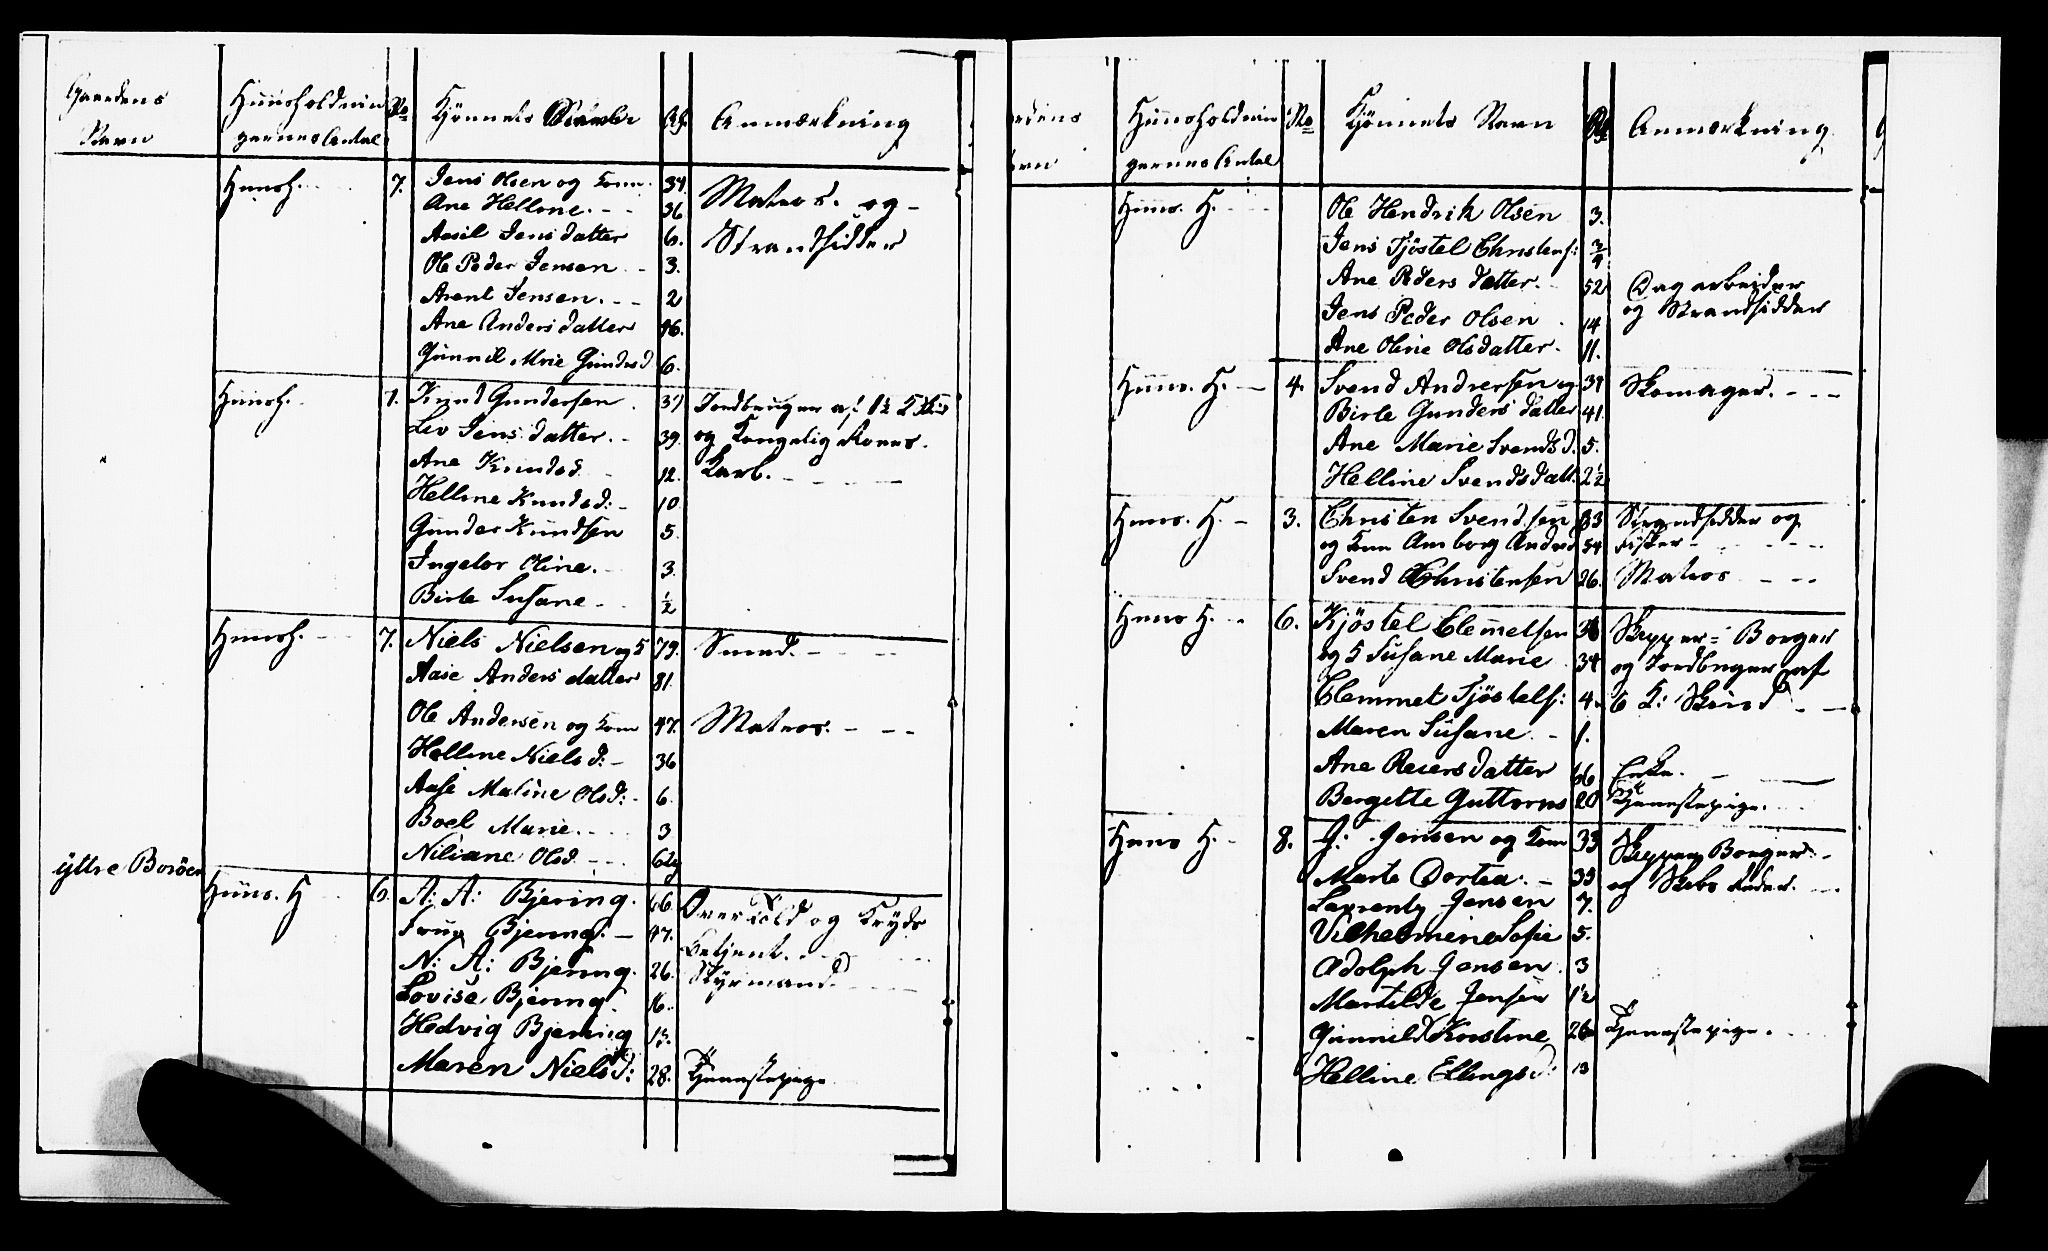 Gaardens Huusholdnin No Kjönnets Alr. Anmærkning
Navn gernes Antal
Huush. 7. Jens Olsen og Kone 34. Matros og
Ane Helline. 36 Strandsidder
Aasil Jensdatter 6.
Ole Peder Jensen 3.
Arent Jensen. 2
Ane Andersdatter 46.
Gunnil Mrie Gundesd 6.
Huush. 7. Knud Gundersen. 37 Jordbruger af
Liv Jensdatter. 39. og Kongelig
Ane Knudsd 12. Karl.
Helline Knudsd: 10
Gunder Knudsen 5.
Ingebor Oline. 3.
Birte Susane ½
Huush. 7. Niels Nielsen og 79. Smed.
Aase Andersdatter 81.
Ole Andersen og Kone 47. Matros.
Helline Nielsd: 36
Aase Maline Olsd: 6.
Boel Marie. 3
Niliane Olsd
ytre Boröen
Huus. H 6. A: A: Bjering. 66. Over Told og Kryds
Frue Bjering. 47. Betjent.
N: A: Bjering. 26. Styrmand.
Lovise Bjering 16.
Hedvig Bjering 15.
Maren Nielsd: 28. Tjenestepige
Huusholdnin No Kjönnets Navn Alr Anmærkning
gernes Antal
Huus. H. Ole Hendrik Olsen 3.
Jens Tjöstel Christens: ¾
Ane Pedersdatter. 52 Dagarbeider
Jens Peder Olsen 14 og Strandsidder
Ane Oline Olsdatter. 11.
Huus. H. 4. Svend Andersen og 39 Skomager.
Birte Gundersdatter 41.
Ane Marie Svendsd. 5.
Helline Svendsdatt. 2½
Huus. H. 3. Christen Svendsen 63 Strandsidder og
og Kone Anborg Andersd 54 Fisker
Svend Christensen 26. Matros
Huus H. 6. Kjöstel Clemetsen 36 Skipper Borger
og Susane Marie 34 og Jordbruger af
Clemmet Tjöstels: 4. 6 Skind
Maren Susane 1.
Ane Reiersdatter 66 Enke.
Bergette Guttorms 20 Tjenestepige.
Huus H. 8. J: Jensen og Kone 33 Skipper Borger
Marte Dortea. 33 og Skibs Reder.
Laurents Jensen 7.
Vilhelmine Sofie 5.
Adolph Jensen. 3
Martilde Jensen 1½
Gunnild Kirstine 26 Tjenestepige.
Helline Ellingsd: 13